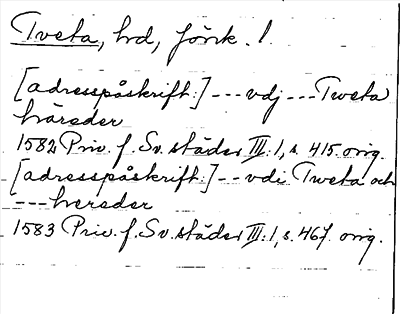 Tveta, hrd, Jönk. l.
[adresspåskrift:] --- vdj --- Tweta
häreder
1582 Priv. f. Sv. städer III:1, s. 415. orig.
[adresspåskrift:] -- vdi Tweta och
--- hereder
1583 Priv. f. Sv. städer III:1, s. 467. orig.